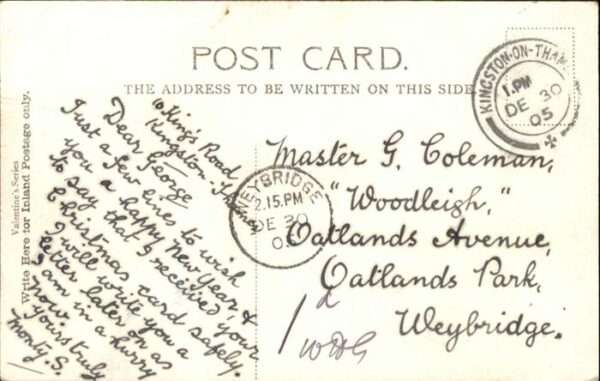 POST CARD.
THE ADDRESS TO BE WRITTEN ON THIS SIDE
Valentine's Series
Write Here for Inland Postage only.
10 King's Road
Kingston
Dear George
Just a few lines to wish
you a happy New Year, &
to say that I received your
Christmas card safely.
I will write you a
letter later on as
I am in a hurry
now.
yours truly
Monty. S.
KINGSTON-ON-THAM
1. PM
DE 30
05
WEYBRIDGE
2.15.PM
DE 30
05
Master G. Coleman,
"Woodleigh,"
Oatlands Avenue,
Oatlands Park,
Weybridge.
1d